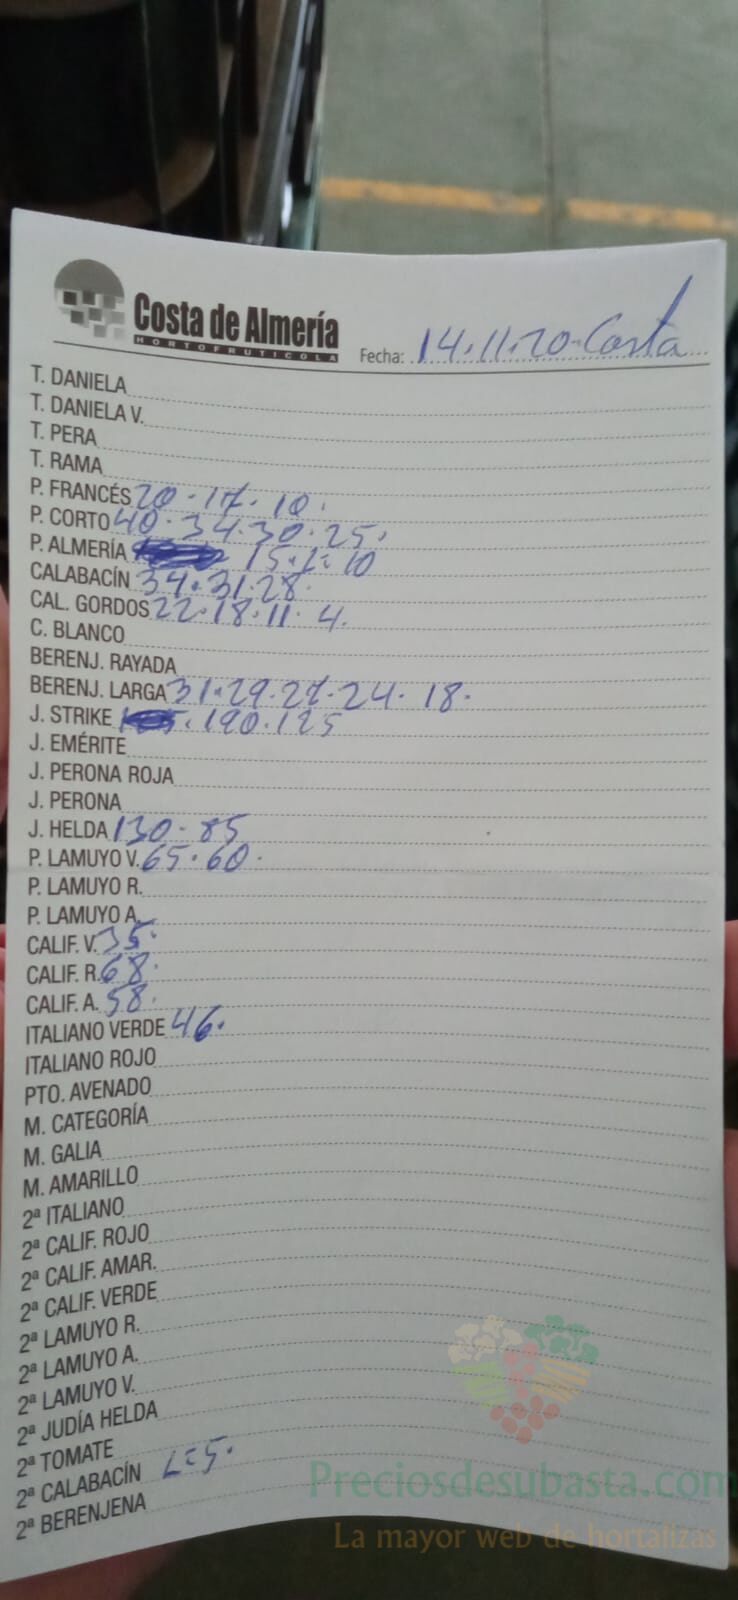 Costa de Almería
HORTOFRUTICOLA
Fecha: 14.11.20 Costa
T. DANIELA
T. DANIELA V.
T. PERA
T. RAMA
P. FRANCÉS 20 · 17 · 10 ·
P. CORTO 40 · 34 · 30 · 25 ·
P. ALMERÍA 15 · L= 10
CALABACÍN 34 · 31 · 28 ·
CAL. GORDOS 22 · 18 · 11 · 4 .
C. BLANCO
BERENJ. RAYADA
BERENJ. LARGA 31 · 29 · 27 · 24 · 18 ·
J. STRIKE · 190 · 125
J. EMÉRITE
J. PERONA ROJA
J. PERONA
J. HELDA 130 · 85
P. LAMUYO V. 65 · 60 ·
P. LAMUYO R.
P. LAMUYO A.
CALIF. V. 35 ·
CALIF. R. 68 ·
CALIF. A. 58 ·
ITALIANO VERDE 46 ·
ITALIANO ROJO
PTO. AVENADO
M. CATEGORÍA
M. GALIA
M. AMARILLO
2ª ITALIANO
2ª CALIF. ROJO
2ª CALIF. AMAR.
2ª CALIF. VERDE
2ª LAMUYO R.
2ª LAMUYO A.
2ª LAMUYO V.
2ª JUDÍA HELDA
2ª TOMATE
2ª CALABACÍN L= 5 ·
2ª BERENJENA
Preciosdesubasta.com
La mayor web de hortalizas